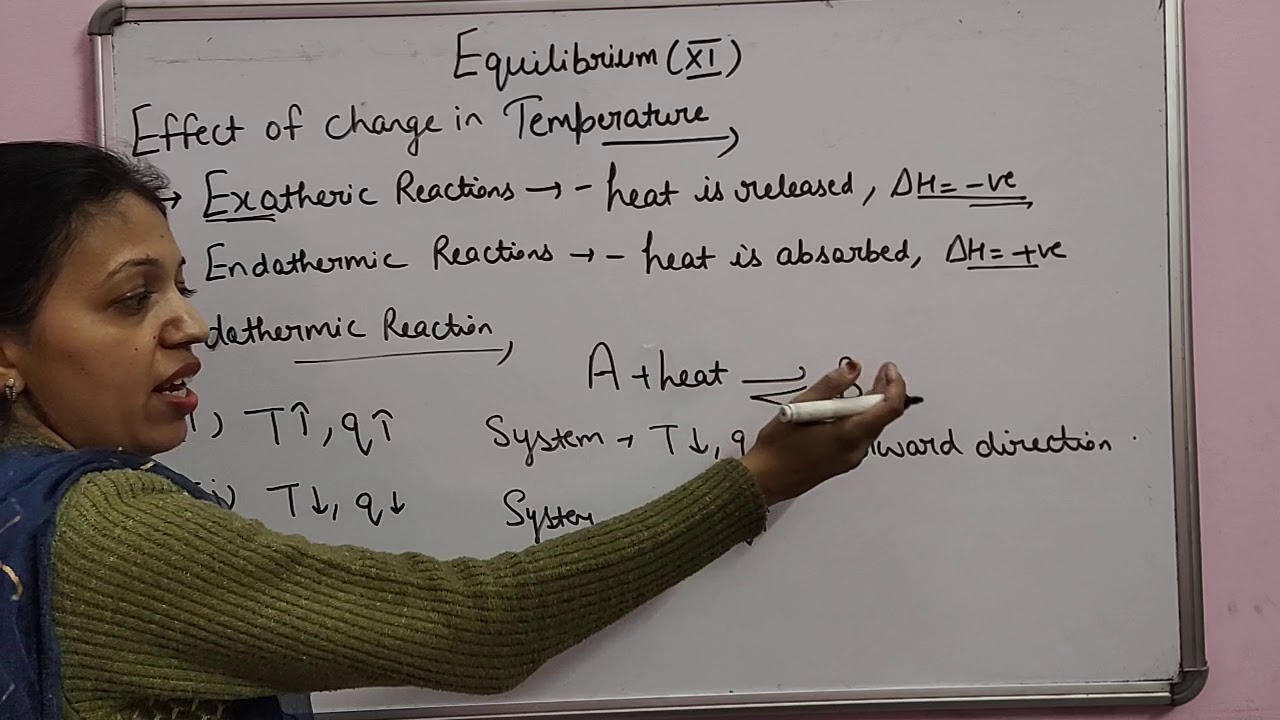 Equilibrium (XI)
Effect of change in Temperature
→ Exatheric Reactions → - heat is released, ΔH = -ve
Endathermic Reactions → - heat is absarbed, ΔH = +ve
dathermic Reaction
A + heat ⇌
i) T↑, q↑ System → T↓, q ward direction
T↓, q↓ System